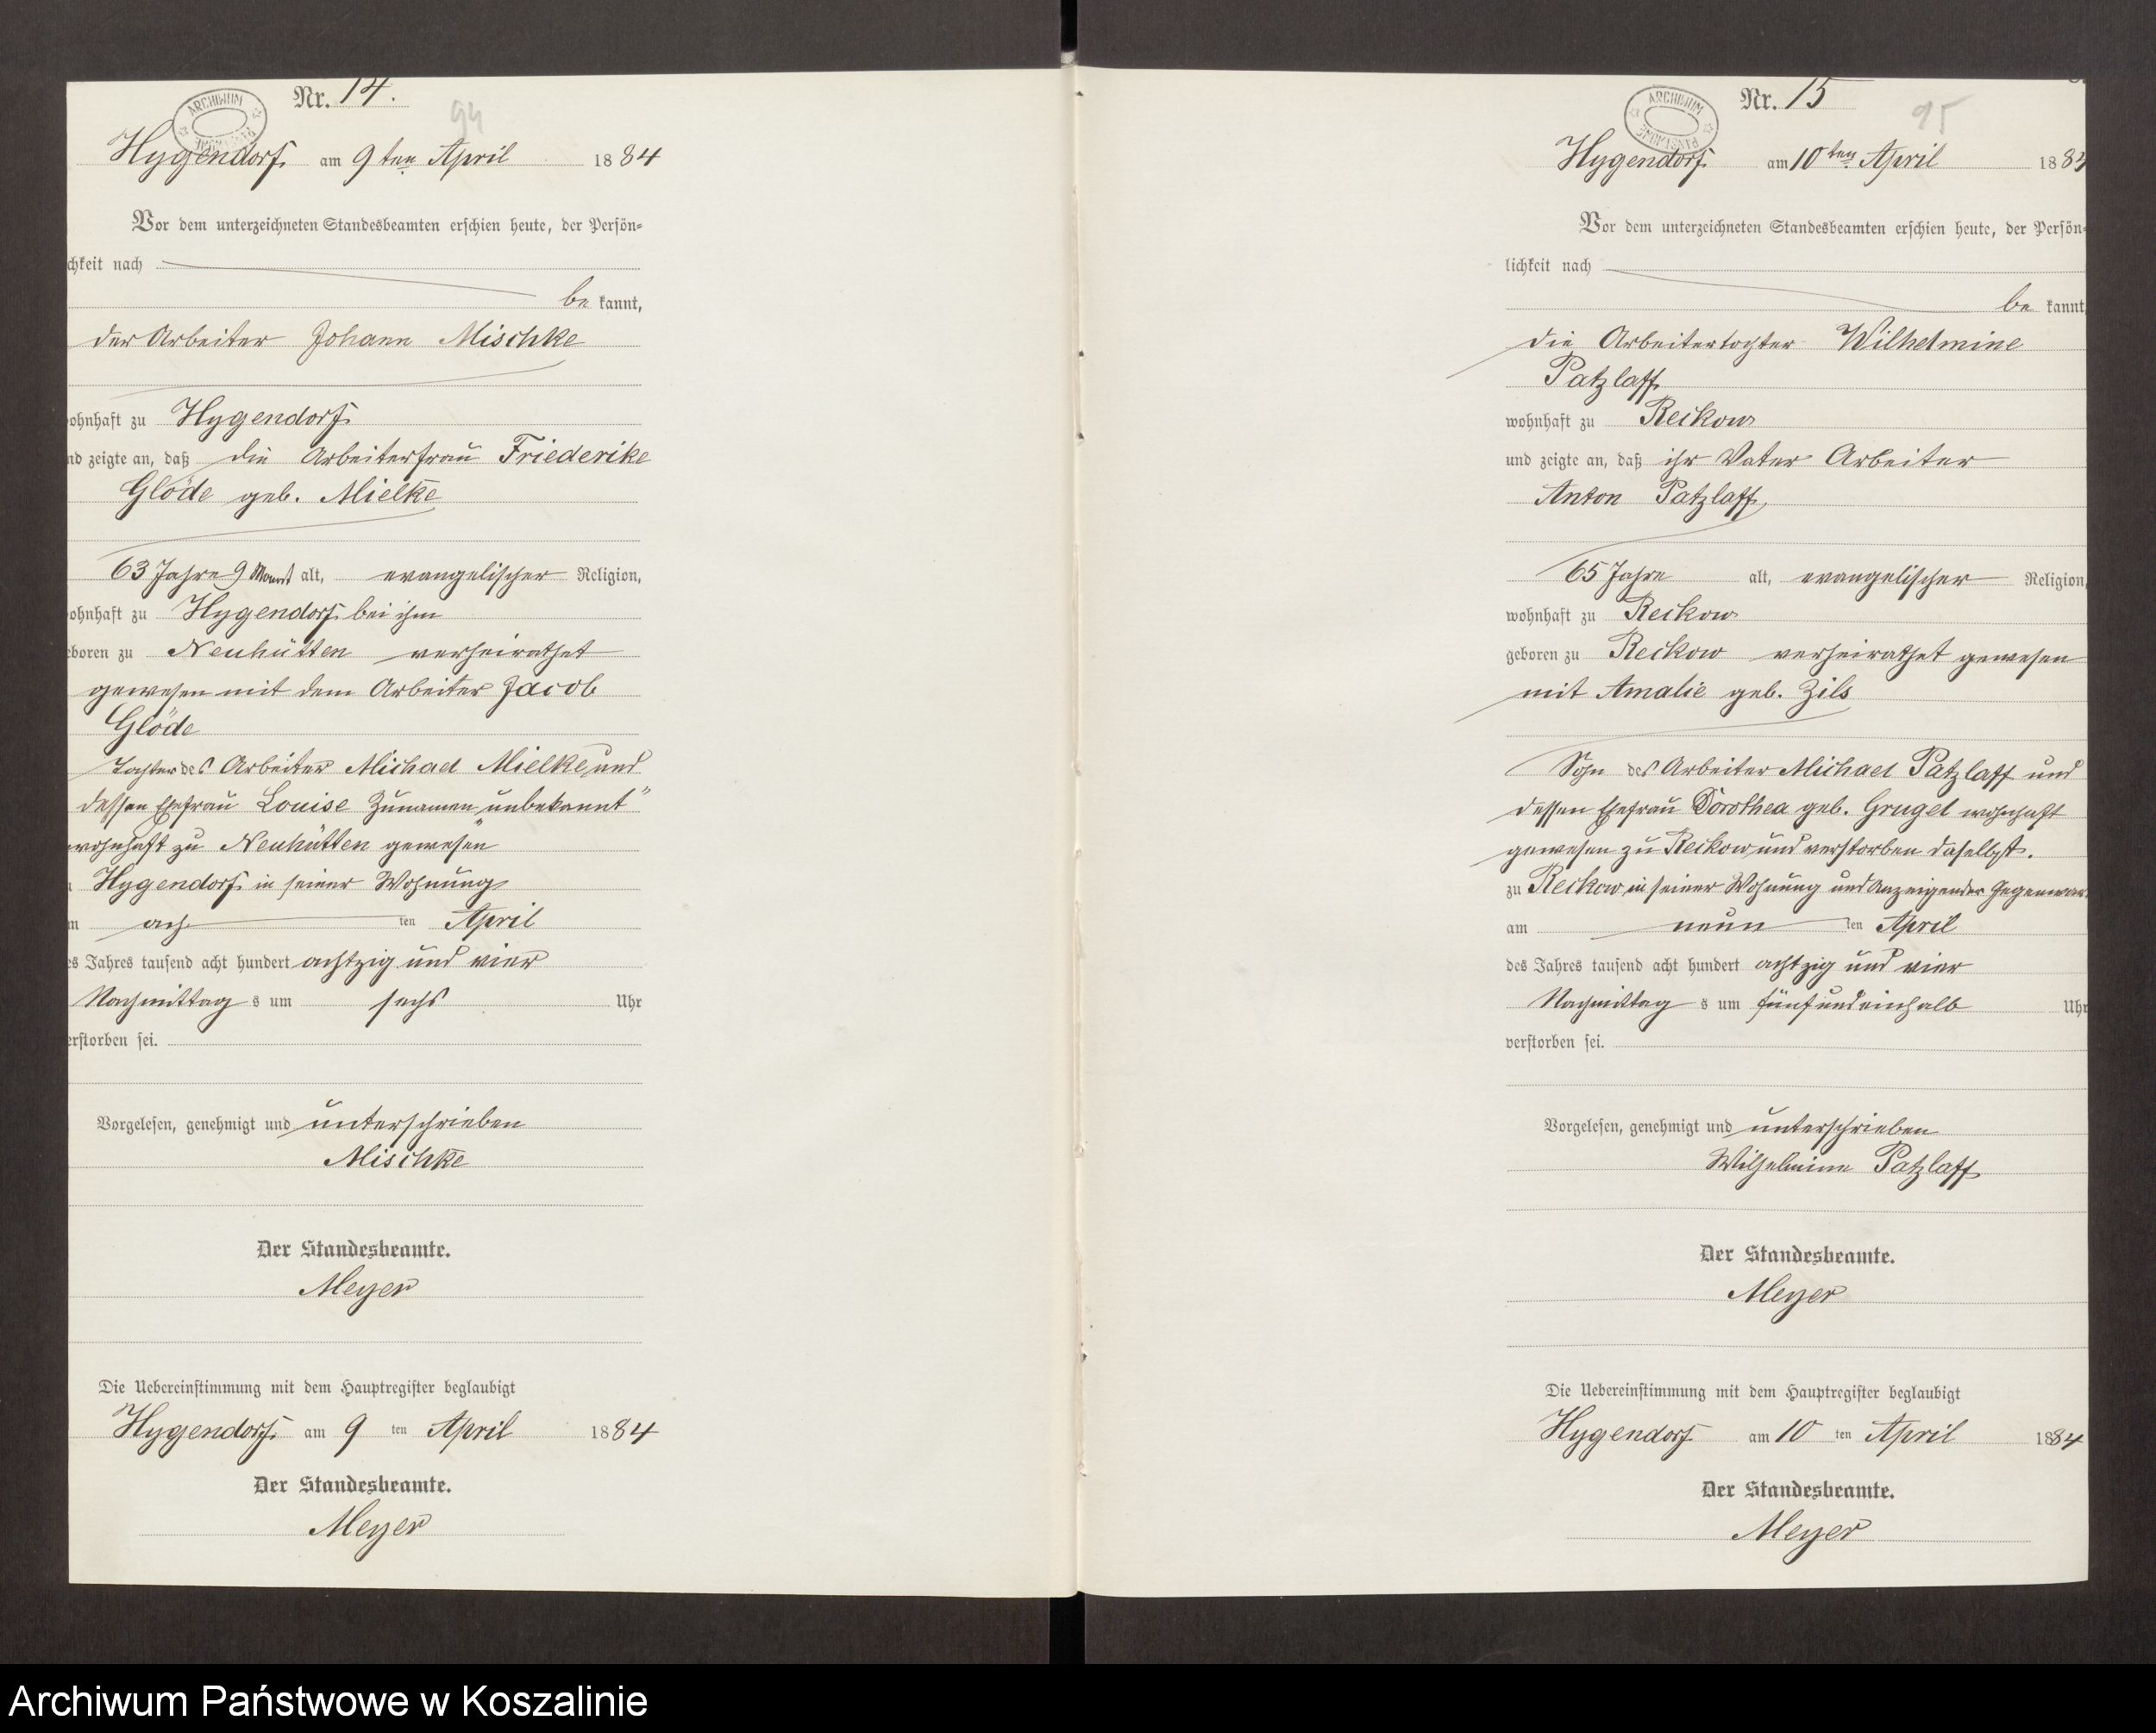 Nr. 14.
94
ARCHIWUM
Hygendorf am 9ten April 1884
Vor dem unterzeichneten Standesbeamten erschien heute, der Persön-
chkeit nach
be kannt,
der Arbeiter Johann Mischke
ohnhaft zu Hygendorf
nd zeigte an, daß die Arbeiterfrau Friederike
Glöde geb. Mielke
63 Jahre 9 Monat alt, evangelischer Religion,
ohnhaft zu Hygendorf bei ihm
eboren zu Neuhütten verheirathet
gewesen mit dem Arbeiter Jacob
Glöde
Tochter des Arbeiter Michael Mielke und
dessen Ehefrau Louise Zunamen „unbekannt"
wohnhaft zu Neuhütten gewesen
Hygendorf in seiner Wohnung
ach ten April
es Jahres tausend acht hundert achtzig und vier
Nachmittag s um sechs Uhr
erstorben sei.
Vorgelesen, genehmigt und unterschrieben
Mischke
Der Standesbeamte.
Meyer
Die Uebereinstimmung mit dem Hauptregister beglaubigt
Hygendorf am 9 ten April 1884
Der Standesbeamte.
Meyer
Nr. 15
95
ARCHIWUM
Hygendorf am 10ten April 1884
Vor dem unterzeichneten Standesbeamten erschien heute, der Persön-
lichkeit nach
be kannt
die Arbeitertochter Wilhelmine
Patzlaff
wohnhaft zu Reckow
und zeigte an, daß ihr Vater Arbeiter
Anton Patzlaff,
65 Jahre alt, evangelischer Religion,
wohnhaft zu Reckow
geboren zu Reckow verheirathet gewesen
mit Amalie geb. Zils
Sohn des Arbeiter Michael Patzlaff und
dessen Ehefrau Dorothea geb. Grugel wohnhaft
gewesen zu Reckow und verstorben daselbst.
zu Reckow in seiner Wohnung und Anzeigender Gegenwar
am neun ten April
des Jahres tausend acht hundert achtzig und vier
Nachmittag s um fünf und einhalb Uhr
verstorben sei.
Vorgelesen, genehmigt und unterschrieben
Wilhelmine Patzlaff
Der Standesbeamte.
Meyer
Die Uebereinstimmung mit dem Hauptregister beglaubigt
Hygendorf am 10 ten April 1884
Der Standesbeamte.
Meyer
Archiwum Państwowe w Koszalinie